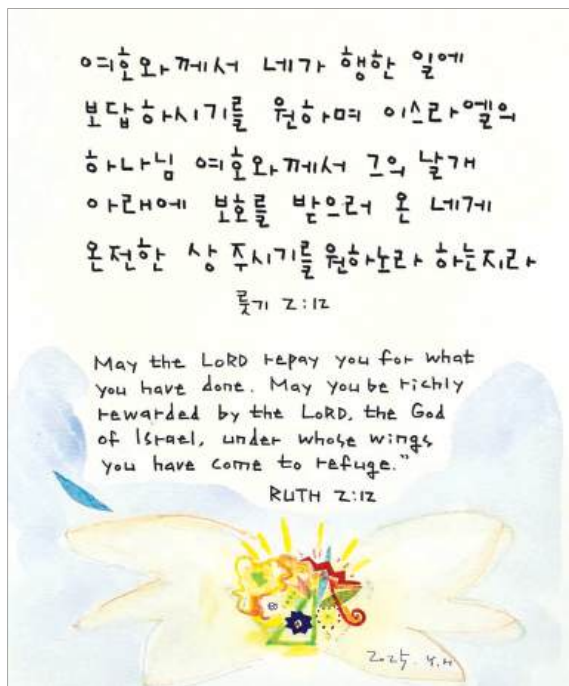 여호와께서 네가 행한 일에
보답하시기를 원하며 이스라엘의
하나님 여호와께서 그의 날개
아래에 보호를 받으러 온 네게
온전한 상 주시기를 원하노라 하는지라
룻기 2:12
May the LORD repay you for what
you have done. May you be richly
rewarded by the LORD, the God
of Israel, under whose wings
you have come to refuge."
RUTH 2:12
2025. Y.H